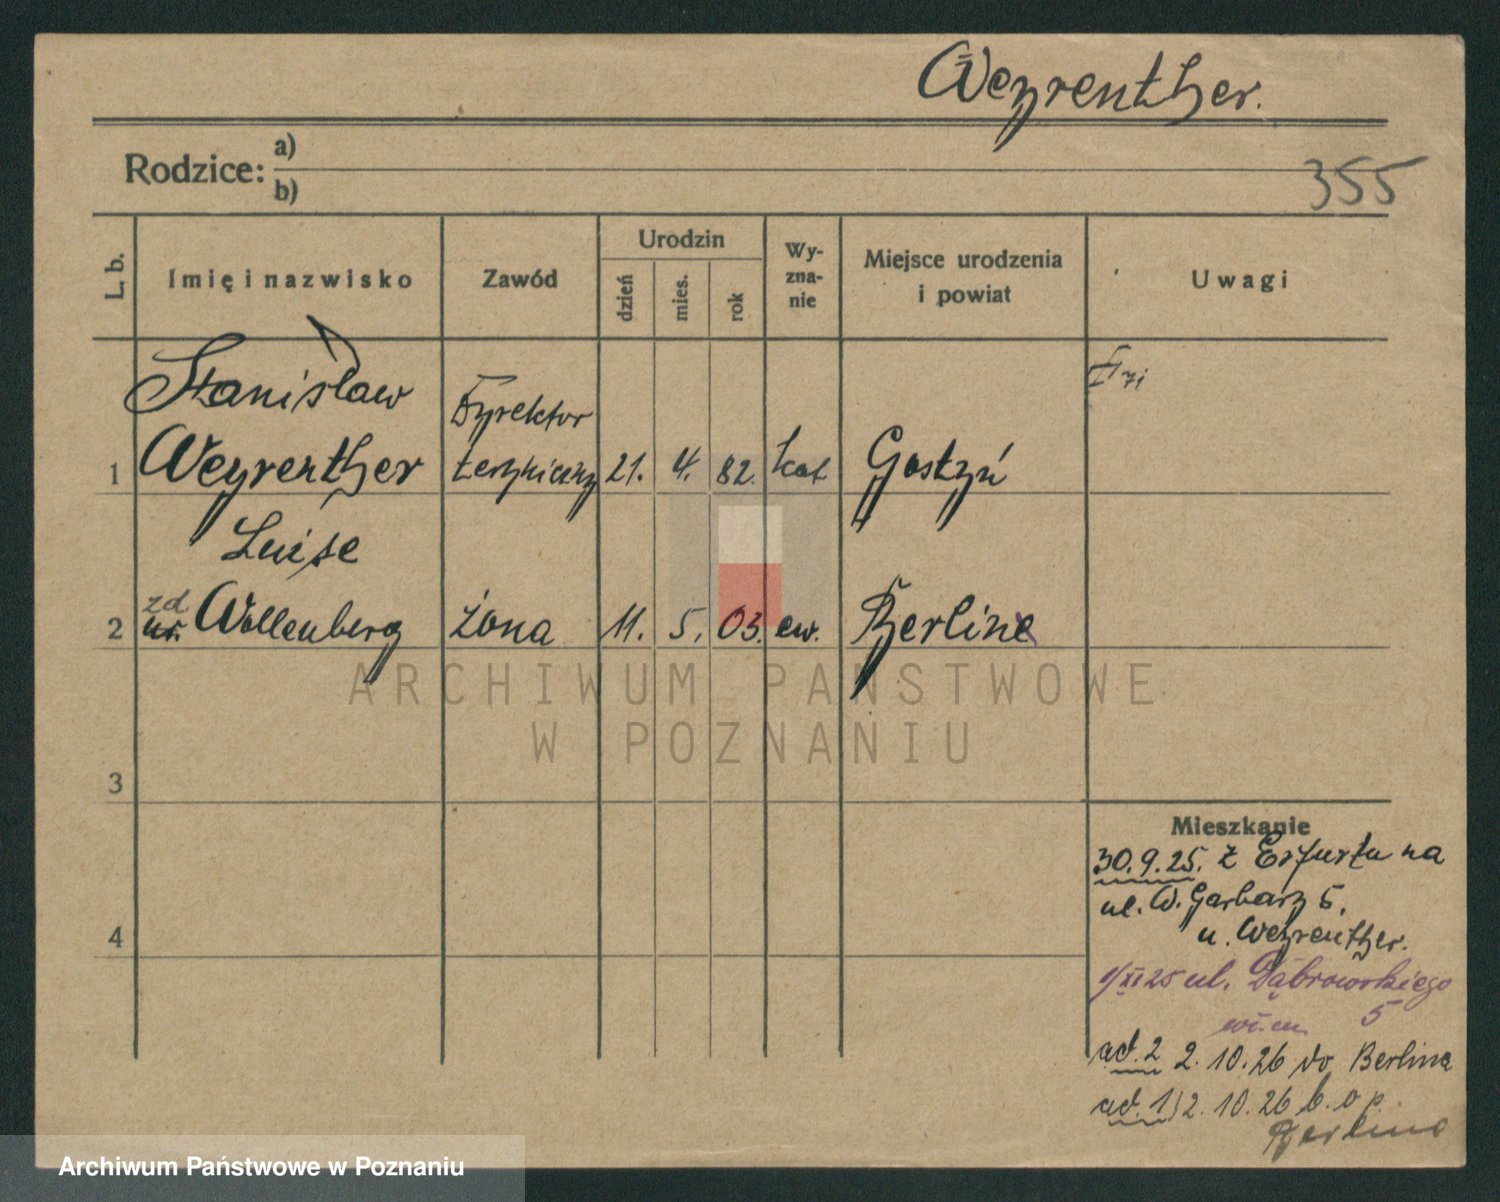 Weyrenther.
Rodzice: a)
b)
355
L. b.
Imię i nazwisko
Zawód
Urodzin
dzień
mies.
rok
Wy-
zna-
nie
Miejsce urodzenia
i powiat
Uwagi
Stanisław
Dyrektor
1 Weyrenther techniczny 21. 4. 82. kat Gostyń
Luise
zd
2 ur. Wollenberg żona 11. 5. 03. ew. Berline
ARCHIWUM PAŃSTWOWE
W POZNANIU
3
4
Mieszkanie
30.9.25. z Erfurtu na
ul. W. Garbary 5.
u. Weyrenther.
1/XI 25 ul. Dąbrowskiego
5
ad. 2 2.10.26 do Berlina
ad. 1) 2.10.26 b. o p.
Berlina
Archiwum Państwowe w Poznaniu